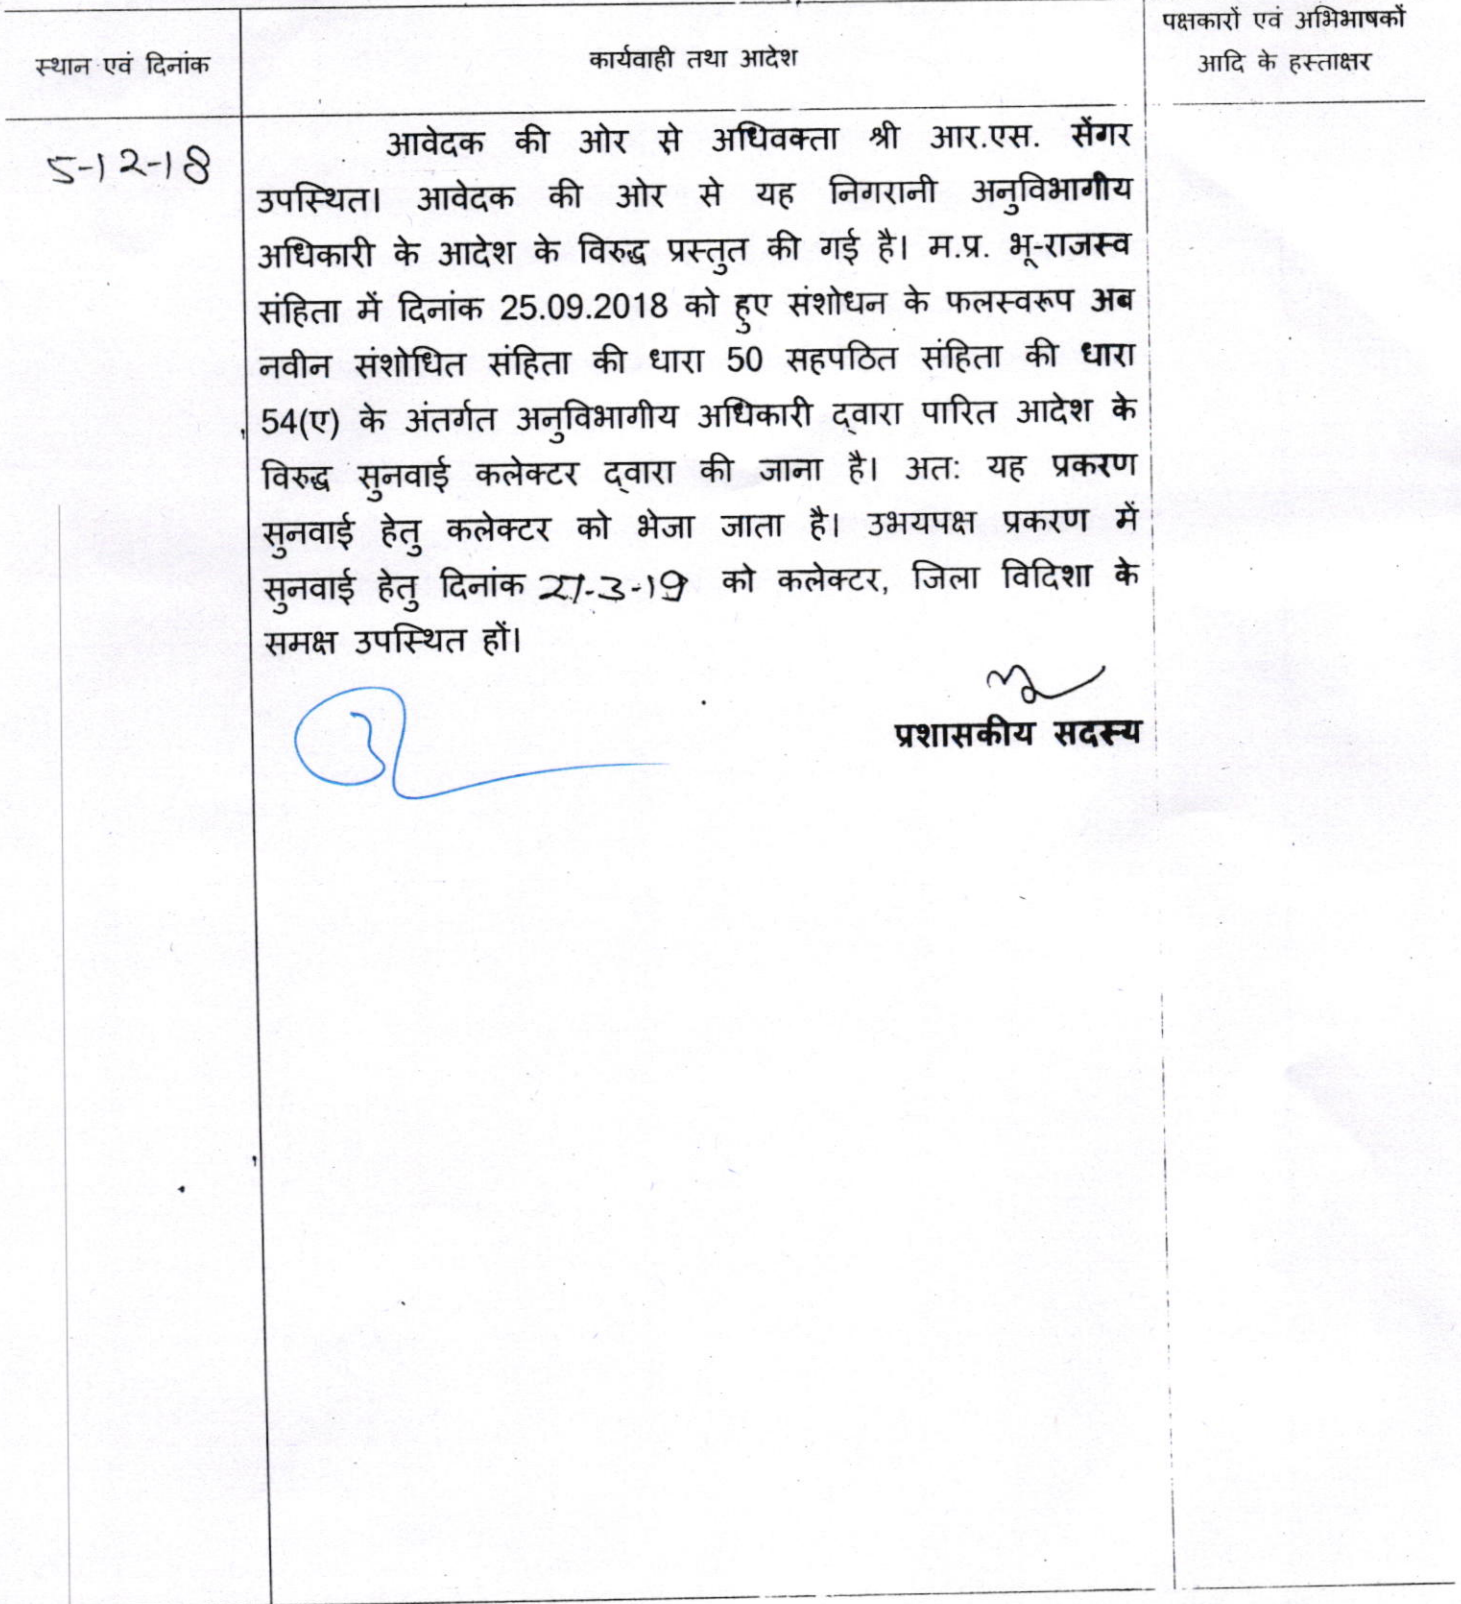 स्थान एवं दिनांक
कार्यवाही तथा आदेश
पक्षकारों एवं अभिभाषकों
आदि के हस्ताक्षर
5-12-18
आवेदक की ओर से अधिवक्ता श्री आर.एस. सेंगर
उपस्थित। आवेदक की ओर से यह निगरानी अनुविभागीय
अधिकारी के आदेश के विरुद्ध प्रस्तुत की गई है। म.प्र. भू-राजस्व
संहिता में दिनांक 25.09.2018 को हुए संशोधन के फलस्वरूप अब
नवीन संशोधित संहिता की धारा 50 सहपठित संहिता की धारा
54(ए) के अंतर्गत अनुविभागीय अधिकारी द्वारा पारित आदेश के
विरुद्ध सुनवाई कलेक्टर द्वारा की जाना है। अतः यह प्रकरण
सुनवाई हेतु कलेक्टर को भेजा जाता है। उभयपक्ष प्रकरण में
सुनवाई हेतु दिनांक 27-3-19 को कलेक्टर, जिला विदिशा के
समक्ष उपस्थित हों।
प्रशासकीय सदस्य